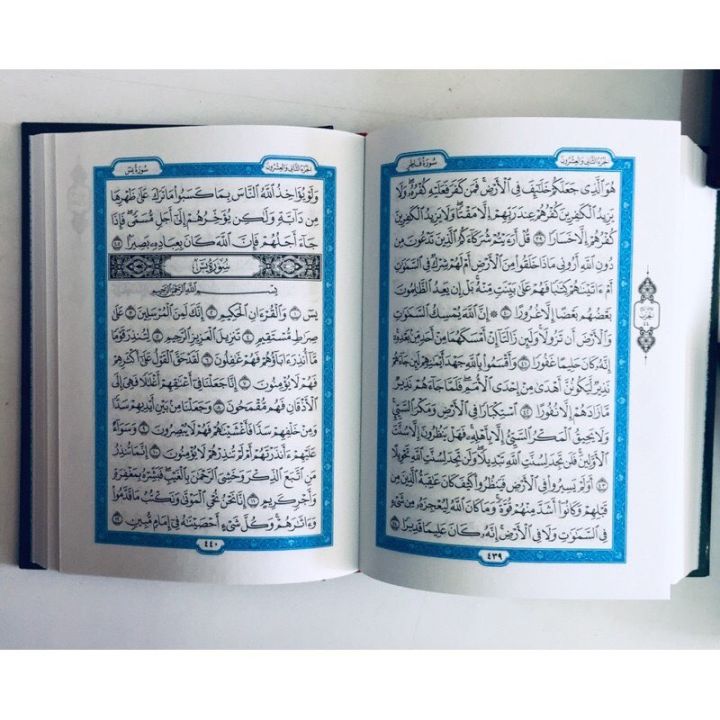 الجزء الثاني والعشرون
سورة فاطر
هُوَ ٱلَّذِى جَعَلَكُمْ خَلَٰٓئِفَ فِى ٱلْأَرْضِ ۚ فَمَن كَفَرَ فَعَلَيْهِ كُفْرُهُۥ ۖ وَلَا
يَزِيدُ ٱلْكَٰفِرِينَ كُفْرُهُمْ عِندَ رَبِّهِمْ إِلَّا مَقْتًا ۖ وَلَا يَزِيدُ ٱلْكَٰفِرِينَ
كُفْرُهُمْ إِلَّا خَسَارًا ٣٩ قُلْ أَرَءَيْتُمْ شُرَكَآءَكُمُ ٱلَّذِينَ تَدْعُونَ مِن
دُونِ ٱللَّهِ أَرُونِى مَاذَا خَلَقُوا۟ مِنَ ٱلْأَرْضِ أَمْ لَهُمْ شِرْكٌ فِى ٱلسَّمَٰوَٰتِ
أَمْ ءَاتَيْنَٰهُمْ كِتَٰبًا فَهُمْ عَلَىٰ بَيِّنَتٍ مِّنْهُ ۚ بَلْ إِن يَعِدُ ٱلظَّٰلِمُونَ
بَعْضُهُم بَعْضًا إِلَّا غُرُورًا ٤٠ ۞ إِنَّ ٱللَّهَ يُمْسِكُ ٱلسَّمَٰوَٰتِ
وَٱلْأَرْضَ أَن تَزُولَا ۚ وَلَئِن زَالَتَآ إِنْ أَمْسَكَهُمَا مِنْ أَحَدٍ مِّنۢ بَعْدِهِۦٓ ۚ
إِنَّهُۥ كَانَ حَلِيمًا غَفُورًا ٤١ وَأَقْسَمُوا۟ بِٱللَّهِ جَهْدَ أَيْمَٰنِهِمْ لَئِن جَآءَهُمْ
نَذِيرٌ لَّيَكُونُنَّ أَهْدَىٰ مِنْ إِحْدَى ٱلْأُمَمِ ۖ فَلَمَّا جَآءَهُمْ نَذِيرٌ
مَّا زَادَهُمْ إِلَّا نُفُورًا ٤٢ ٱسْتِكْبَارًا فِى ٱلْأَرْضِ وَمَكْرَ ٱلسَّيِّئِ ۚ
وَلَا يَحِيقُ ٱلْمَكْرُ ٱلسَّيِّئُ إِلَّا بِأَهْلِهِۦ ۚ فَهَلْ يَنظُرُونَ إِلَّا سُنَّتَ
ٱلْأَوَّلِينَ ۚ فَلَن تَجِدَ لِسُنَّتِ ٱللَّهِ تَبْدِيلًا ۖ وَلَن تَجِدَ لِسُنَّتِ ٱللَّهِ تَحْوِيلًا
٤٣ أَوَلَمْ يَسِيرُوا۟ فِى ٱلْأَرْضِ فَيَنظُرُوا۟ كَيْفَ كَانَ عَٰقِبَةُ ٱلَّذِينَ مِن
قَبْلِهِمْ وَكَانُوٓا۟ أَشَدَّ مِنْهُمْ قُوَّةً ۚ وَمَا كَانَ ٱللَّهُ لِيُعْجِزَهُۥ مِن شَىْءٍ
فِى ٱلسَّمَٰوَٰتِ وَلَا فِى ٱلْأَرْضِ ۚ إِنَّهُۥ كَانَ عَلِيمًا قَدِيرًا ٤٤
٤٣٩
الجزء الثاني والعشرون
سورة يس
وَلَوْ يُؤَاخِذُ ٱللَّهُ ٱلنَّاسَ بِمَا كَسَبُوا۟ مَا تَرَكَ عَلَىٰ ظَهْرِهَا
مِن دَآبَّةٍ وَلَٰكِن يُؤَخِّرُهُمْ إِلَىٰٓ أَجَلٍ مُّسَمًّى ۖ فَإِذَا
جَآءَ أَجَلُهُمْ فَإِنَّ ٱللَّهَ كَانَ بِعِبَادِهِۦ بَصِيرًۢا ٤٥
سورة يس
بِسْمِ ٱللَّهِ ٱلرَّحْمَٰنِ ٱلرَّحِيمِ
يسٓ ١ وَٱلْقُرْءَانِ ٱلْحَكِيمِ ٢ إِنَّكَ لَمِنَ ٱلْمُرْسَلِينَ ٣ عَلَىٰ
صِرَٰطٍ مُّسْتَقِيمٍ ٤ تَنزِيلَ ٱلْعَزِيزِ ٱلرَّحِيمِ ٥ لِتُنذِرَ قَوْمًا
مَّآ أُنذِرَ ءَابَآؤُهُمْ فَهُمْ غَٰفِلُونَ ٦ لَقَدْ حَقَّ ٱلْقَوْلُ عَلَىٰٓ أَكْثَرِهِمْ
فَهُمْ لَا يُؤْمِنُونَ ٧ إِنَّا جَعَلْنَا فِىٓ أَعْنَٰقِهِمْ أَغْلَٰلًا فَهِىَ إِلَى
ٱلْأَذْقَانِ فَهُم مُّقْمَحُونَ ٨ وَجَعَلْنَا مِنۢ بَيْنِ أَيْدِيهِمْ سَدًّا
وَمِنْ خَلْفِهِمْ سَدًّا فَأَغْشَيْنَٰهُمْ فَهُمْ لَا يُبْصِرُونَ ٩ وَسَوَآءٌ
عَلَيْهِمْ ءَأَنذَرْتَهُمْ أَمْ لَمْ تُنذِرْهُمْ لَا يُؤْمِنُونَ ١٠ إِنَّمَا تُنذِرُ
مَنِ ٱتَّبَعَ ٱلذِّكْرَ وَخَشِىَ ٱلرَّحْمَٰنَ بِٱلْغَيْبِ ۖ فَبَشِّرْهُ بِمَغْفِرَةٍ
وَأَجْرٍ كَرِيمٍ ١١ إِنَّا نَحْنُ نُحْىِ ٱلْمَوْتَىٰ وَنَكْتُبُ مَا قَدَّمُوا۟
وَءَاثَٰرَهُمْ ۚ وَكُلَّ شَىْءٍ أَحْصَيْنَٰهُ فِىٓ إِمَامٍ مُّبِينٍ ١٢
٤٤٠